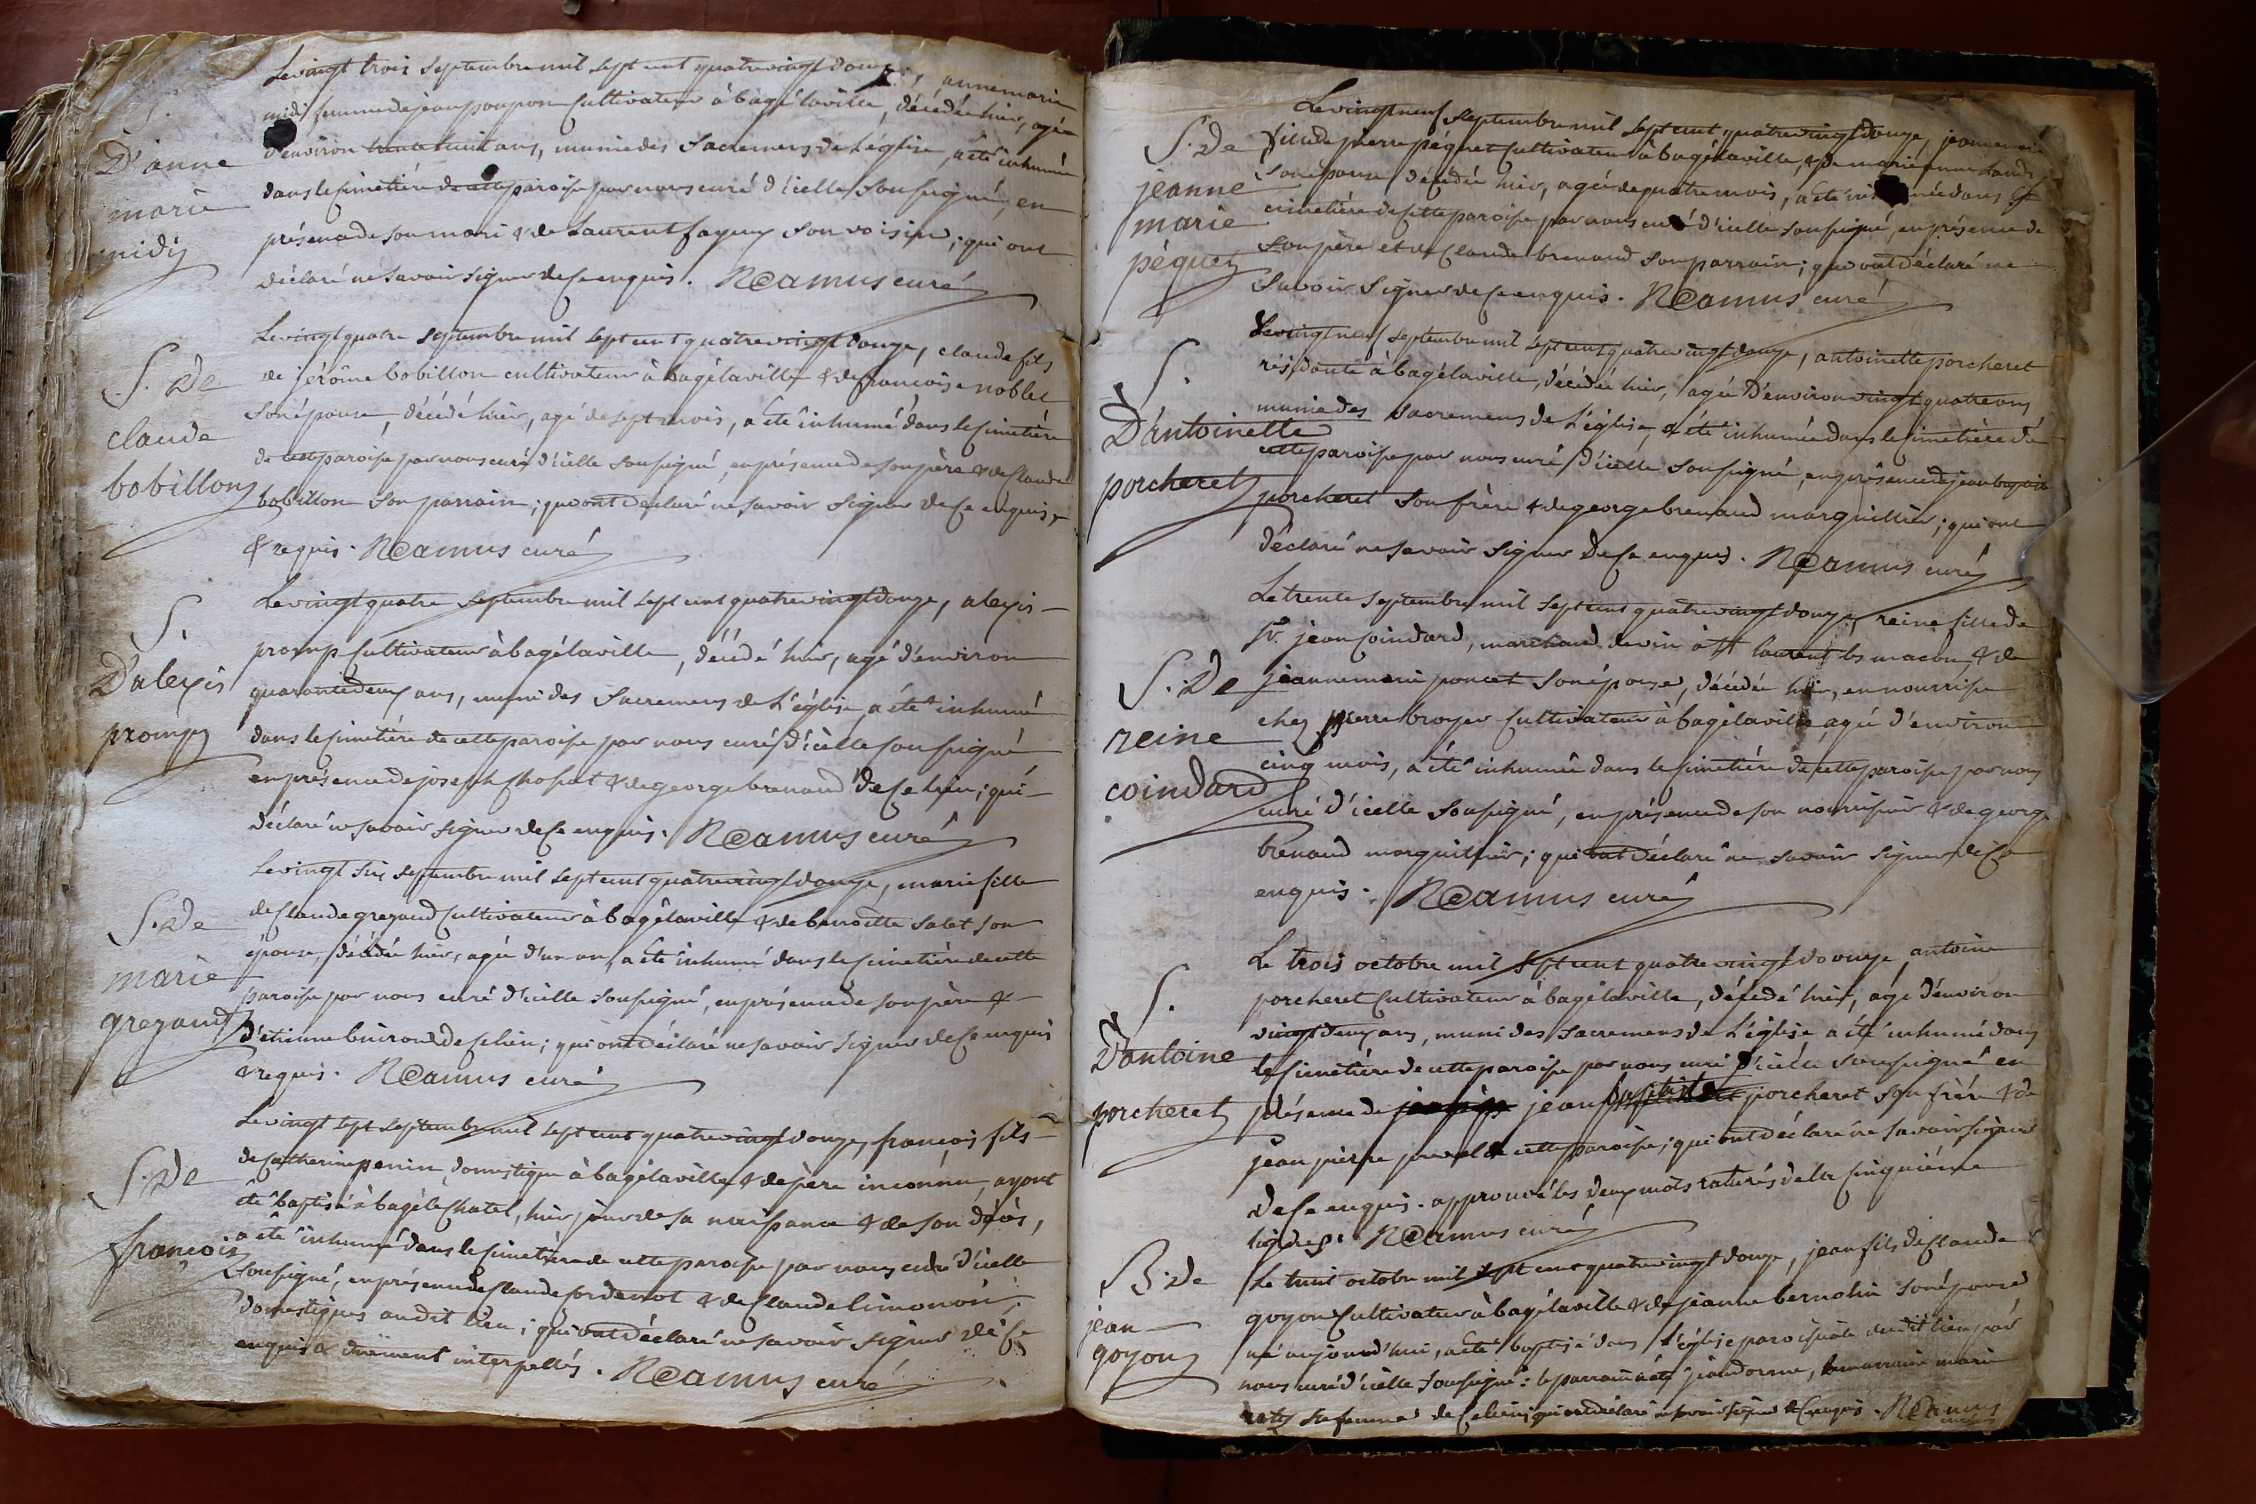 Le vingt trois septembre mil sept cent quatre vingt douze, annemarie
midi femme de jean poupon cultivateur à bagélaville, décédée hier, agée
S.
D'anne
marie
midy
d'environ trente huit ans, munie des sacremens de l'église, a été inhumée
dans le cimetière de cette paroisse par nous curé d'icelle soussigné, en
présence de son mari & de laurent fayeux son voisin; qui ont
déclaré ne savoir signer de ce enquis. Neamus curé
Le vingt quatre septembre mil sept cent quatre vingt douze, claude fils
S. De
claude
bobillon
de jérôme bobillon cultivateur à bagélaville & de françoise noblet
son épouse, décédé hier, agé de sept mois, a été inhumé dans le cimetière
de cette paroisse par nous curé d'icelle soussigné, en présence de son père & de claude
bobillon son parrain; qui ont déclaré ne savoir signer de ce enquis,
& requis. Neamus curé
Le vingt quatre septembre mil sept cent quatre vingt douze, alexis
S.
D'alexis
promp
promp cultivateur à bagélaville, décédé hier, agé d'environ
quarante deux ans, muni des sacremens de l'église, a été inhumé
dans le cimetière de cette paroisse par nous curé d'icelle soussigné
en présence de joseph chossat & de george brenaud de ce lieu; qui
déclaré ne savoir signer de ce enquis. Neamus curé
Le vingt six septembre mil sept cent quatre vingt douze, marie fille
S. De
marie
grezaud
de claude grezaud cultivateur à bagélaville & de benoitte salet son
épouse, décédée hier, agée d'un an, a été inhumé dans le cimetière de cette
paroisse par nous curé d'icelle soussigné, en présence de son père &
d'étienne buiron de ce lieu; qui ont déclaré ne savoir signer de ce enquis
& requis. Neamus curé
Le vingt sept septembre mil sept cent quatre vingt douze, françois fils
S. De
françois
de catherine penin domestique à bagélaville & de père inconnu, ayant
été baptisé à bagélechatel, hier, jour de sa naissance & de son décès,
a été inhumé dans le cimetière de cette paroisse par nous curé d'icelle
soussigné, en présence de claude cordenot & de claude limonon
domestiques audit lieu; qui ont déclaré ne savoir signer de ce
enquis & duëment interpellés. Neamus curé
Le vingt neuf septembre mil sept cent quatre vingt douze, jeanne marie
S. De
jeanne
marie
péquet
fille de pierre péquet cultivateur à bagélaville, & de marie anne
son épouse, décédée hier, agée de quatre mois, a été inhumée dans le
cimetière de cette paroisse par nous curé d'icelle soussigné, en présence de
son père et de claude brenaud son parrain; qui ont déclaré ne
savoir signer de ce enquis. Neamus curé
Le vingt neuf septembre mil sept cent quatre vingt douze, antoinette porcheret
S.
D'antoinette
porcheret
résidante à bagélaville, décédée hier, agée d'environ vingt quatre ans
munie des sacremens de l'église, a été inhumée dans le cimetière de
cette paroisse par nous curé d'icelle soussigné, en présence de jean baptiste
porcheret son frère & de george brenaud marguillier; qui ont
déclaré ne savoir signer de ce enquis. Neamus curé
Le trente septembre mil sept cent quatre vingt douze, reine fille de
S. De
reine
coindard
Sr. jean coindard, marchand de vin à St laurent lès macon, & de
jeannemarie poncet son épouse, décédée hier, en nourrisse
chez pierre broyer cultivateur à bagélaville, agée d'environ
cinq mois, a été inhumée dans le cimetière de cette paroisse par nous
curé d'icelle soussigné, en présence de son nourrissier & de george
brenaud marguillier; qui ont déclaré ne savoir signer de ce
enquis. Neamus curé
Le trois octobre mil sept cent quatre vingt douze, antoine
S.
D'antoine
porcheret
porcheret cultivateur à bagélaville, décédé hier, agé d'environ
vingt deux ans, muni des sacremens de l'église a été inhumé dans
le cimetière de cette paroisse par nous curé d'icelle soussigné en
présence de jean baptiste porcheret son frère & de
jean pierre de cette paroisse; qui ont déclaré ne savoir signer
de ce enquis. approuvé les deux mots raturés de la cinquième
ligne. Neamus curé
B. De
jean
goyon
Le huit octobre mil sept cent quatre vingt douze, jean fils de claude
goyon cultivateur à bagélaville & de jeanne bernolin son épouse
né aujourd'hui, a été baptisé dans l'église paroissiale dudit lieu par
nous curé d'icelle soussigné: le parrain a été jean dorme, la marraine marie
sa femme de ce lieu; qui ont déclaré ne savoir signer de ce enquis. Neamus